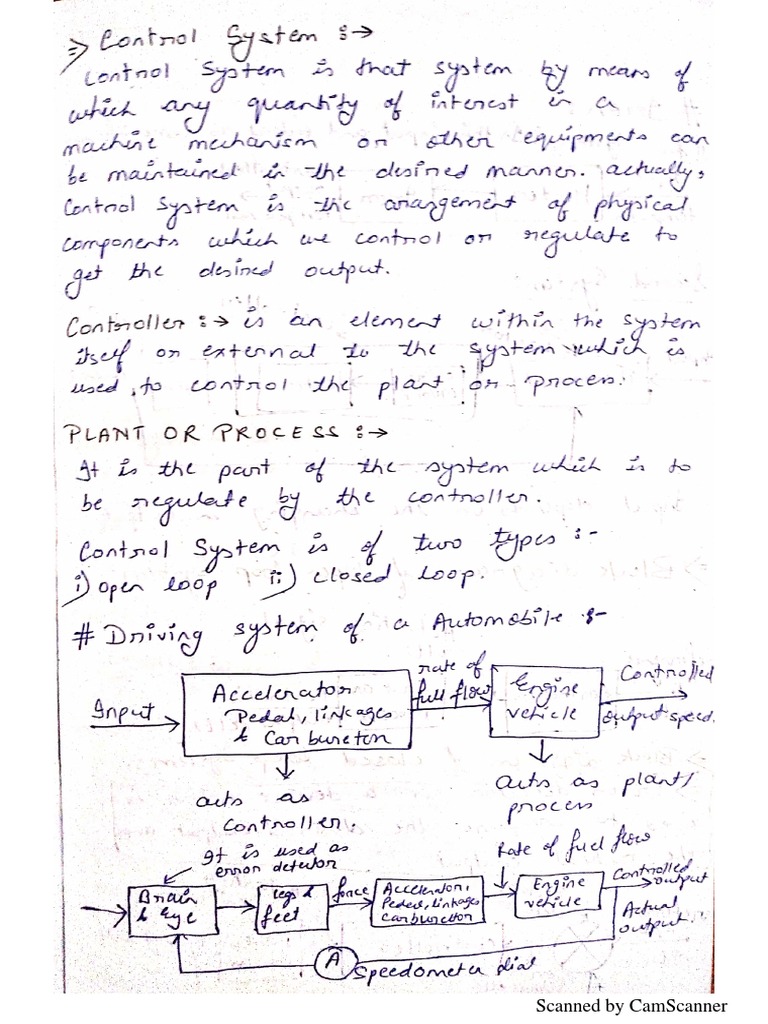 ⇒ Control System :→
Control System is that system by means of
which any quantity of interest in a
machine mechanism or other equipments can
be maintained in the desired manner. actually,
Control System is the arangement of physical
components which we control or regulate to
get the desired output.
Controller :→ is an element within the system
itself or external to the system which is
used to control the plant or process.
PLANT OR PROCESS :→
It is the part of the system which is to
be regulate by the controller.
Control System is of two types :-
i) open loop ii) closed loop.
# Driving system of a Automobile :-
Input
Accelerator
Pedal, linkages
& Carburetor
rate of
full flow
Engine
vehicle
Controlled
output speed.
acts as
Controller.
acts as plant/
process
It is used as
error detector
Rate of fuel flow
Brain
& Eye
legs &
feet
force
Accelerator,
Pedal, linkages
Carburetor
Engine
vehicle
Controlled
output
Actual
output.
A
Speedometer dial
Scanned by CamScanner